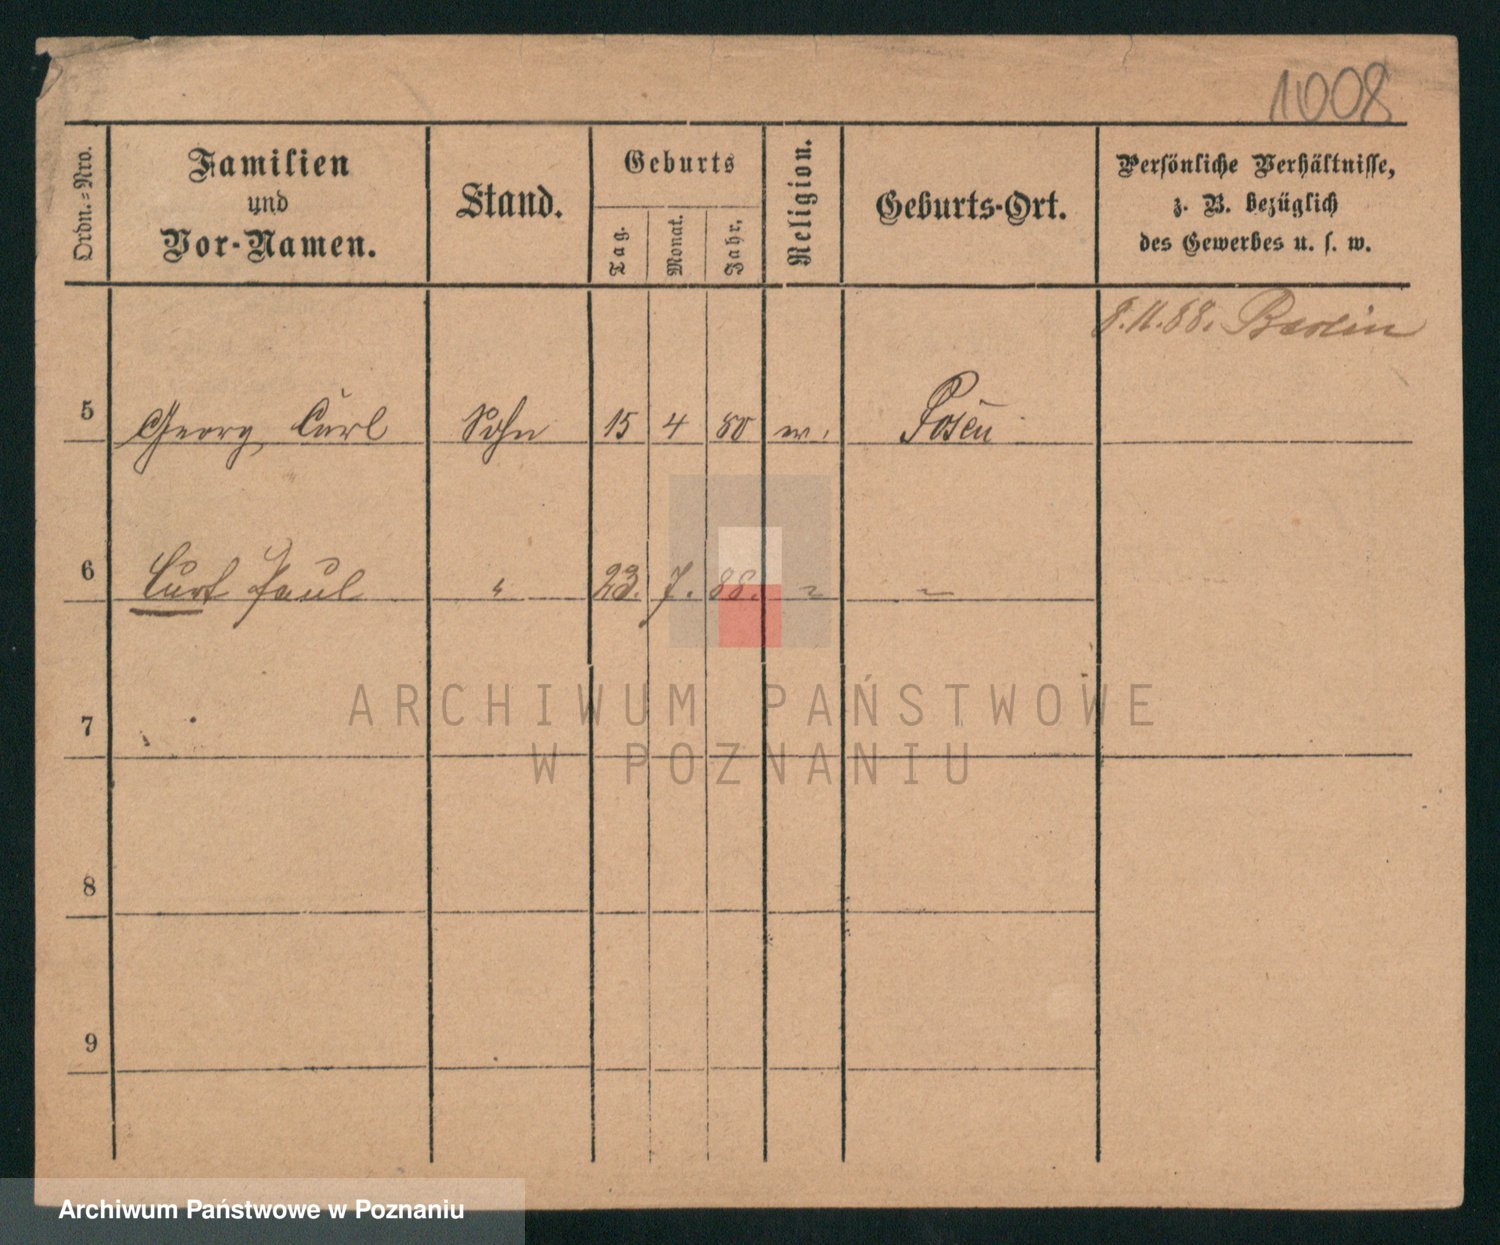 1008
Ordn.=Nro.
Familien
und
Vor-Namen.
Stand.
Geburts
Tag.
Monat.
Jahr.
Religion.
Geburts-Ort.
Persönliche Verhältnisse,
z. B. bezüglich
des Gewerbes u. s. w.
8.11.88. Berlin
5 Georg Curl Sohn 15 4 80 ev. Posen
6 Curt Paul " 23. 7. 88. " "
7
8
9
ARCHIWUM PAŃSTWOWE
W POZNANIU
Archiwum Państwowe w Poznaniu